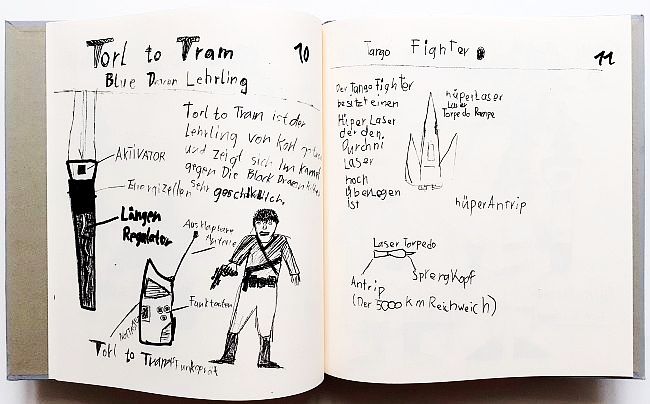 Torl to Tram
10
Blue Dragon Lehrling
Torl to Tram ist der
Lehrling von Korl
und zeigt sich im Kampf
gegen Die Black Dragon
sehr geschiklich.
AKTIVATOR
Energizellen
Längen
Regulator
Ausklapbare
Antene
Funktasten
Torl to Trams Funkgerät
Tango Fighter
11
Der Tango Fighter
besitzt einen
Hüper Laser
der den
Durchni
Laser
noch
überlegen
ist
hüperLaser
Laser
Torpedo Rampe
hüperAntrip
Laser Torpedo
Antrip
Sprengkopf
(Der 5000 km Reichweich)